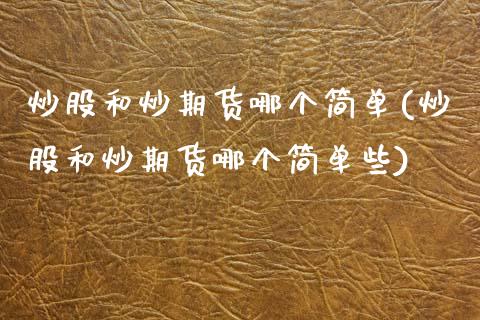 炒股和炒期货哪个简单(炒
股和炒期货哪个简单些)